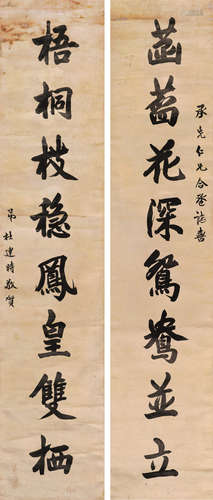 承先仁兄合巹誌喜
菡萏花深鴛鴦並立
梧桐枝穩鳳皇雙栖
弟杜建時敬賀